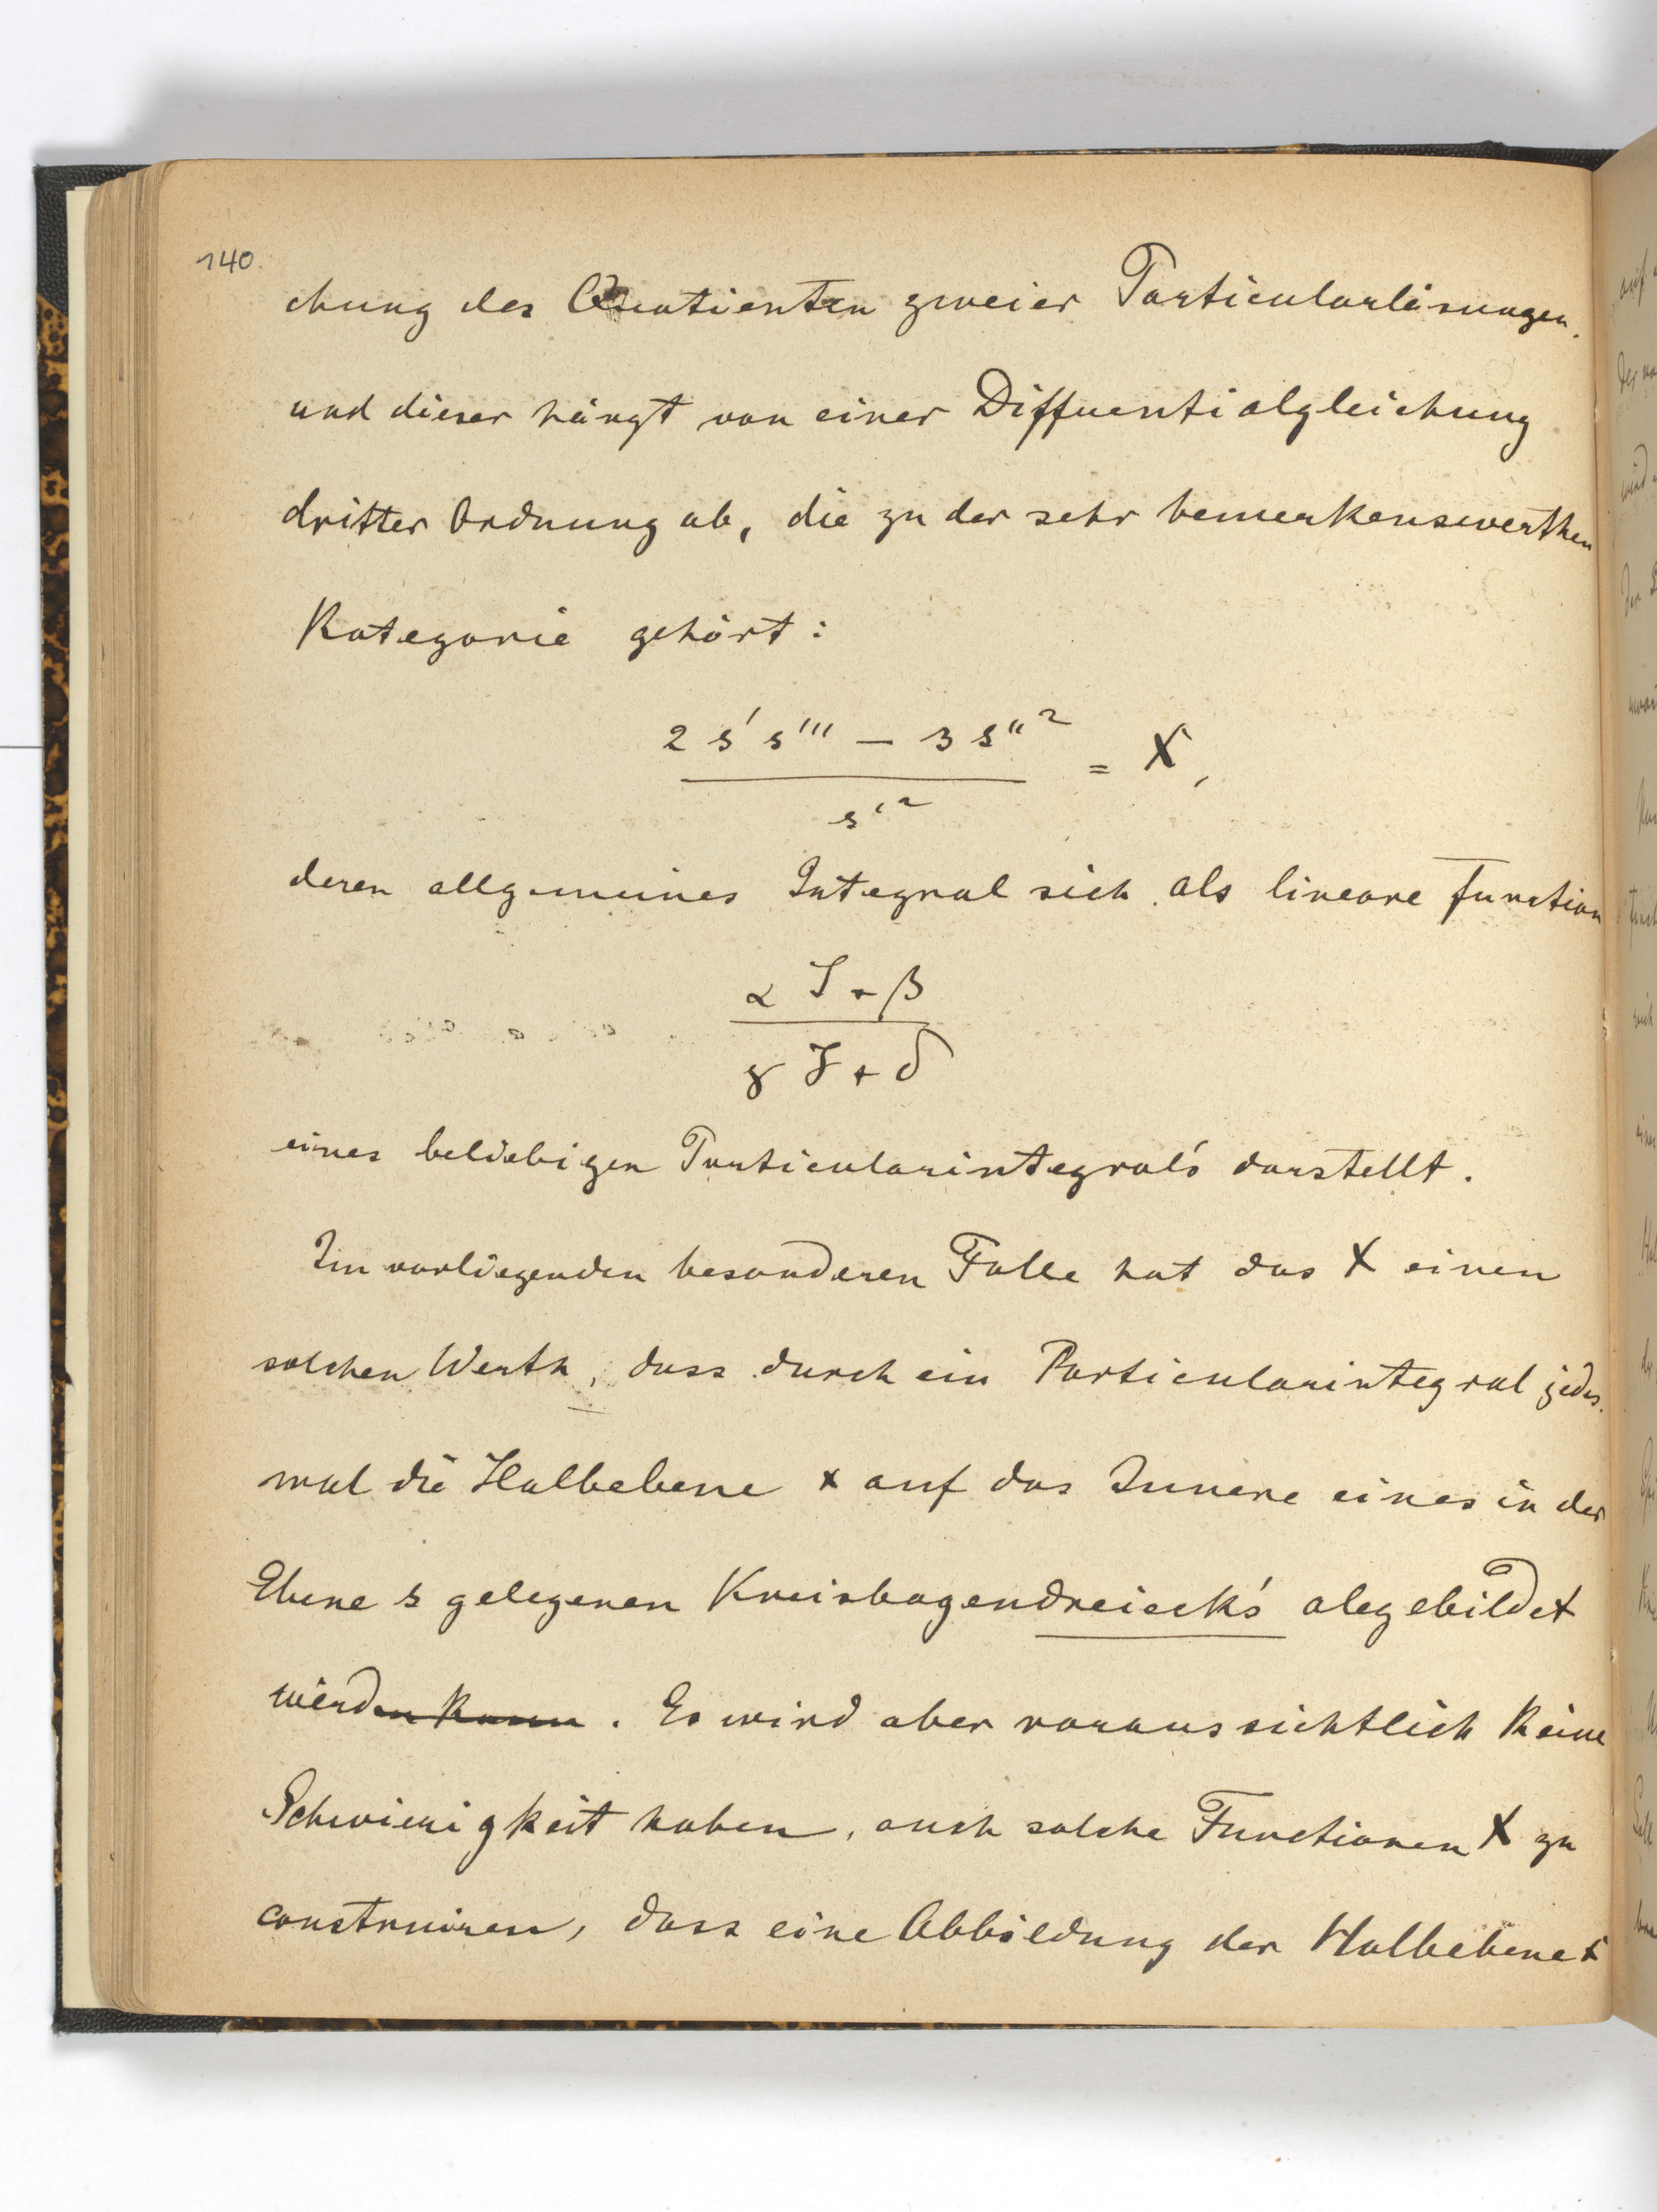 140.
chung des Quotienten zweier Particularlösungen.
und dieser hängt von einer Differentialgleichung
dritter Ordnung ab, die zu der sehr bemerkenswerthen
Kategorie gehört:
2 s' s''' — 3 s''² / s'² = X,
deren allgemeines Integral sich als lineare Function
α J + β / γ J + δ
eines beliebigen Particularintegral's darstellt.
Im vorliegenden besonderen Falle hat das X einen
solchen Werth, dass durch ein Particularintegral jedes-
mal die Halbebene x auf das Innere eines in der
Ebene s gelegenen Kreisbogendreieck's abgebildet
werden kann. Es wird aber voraussichtlich keine
Schwierigkeit haben, auch solche Functionen X zu
construiren, dass eine Abbildung der Halbebene x